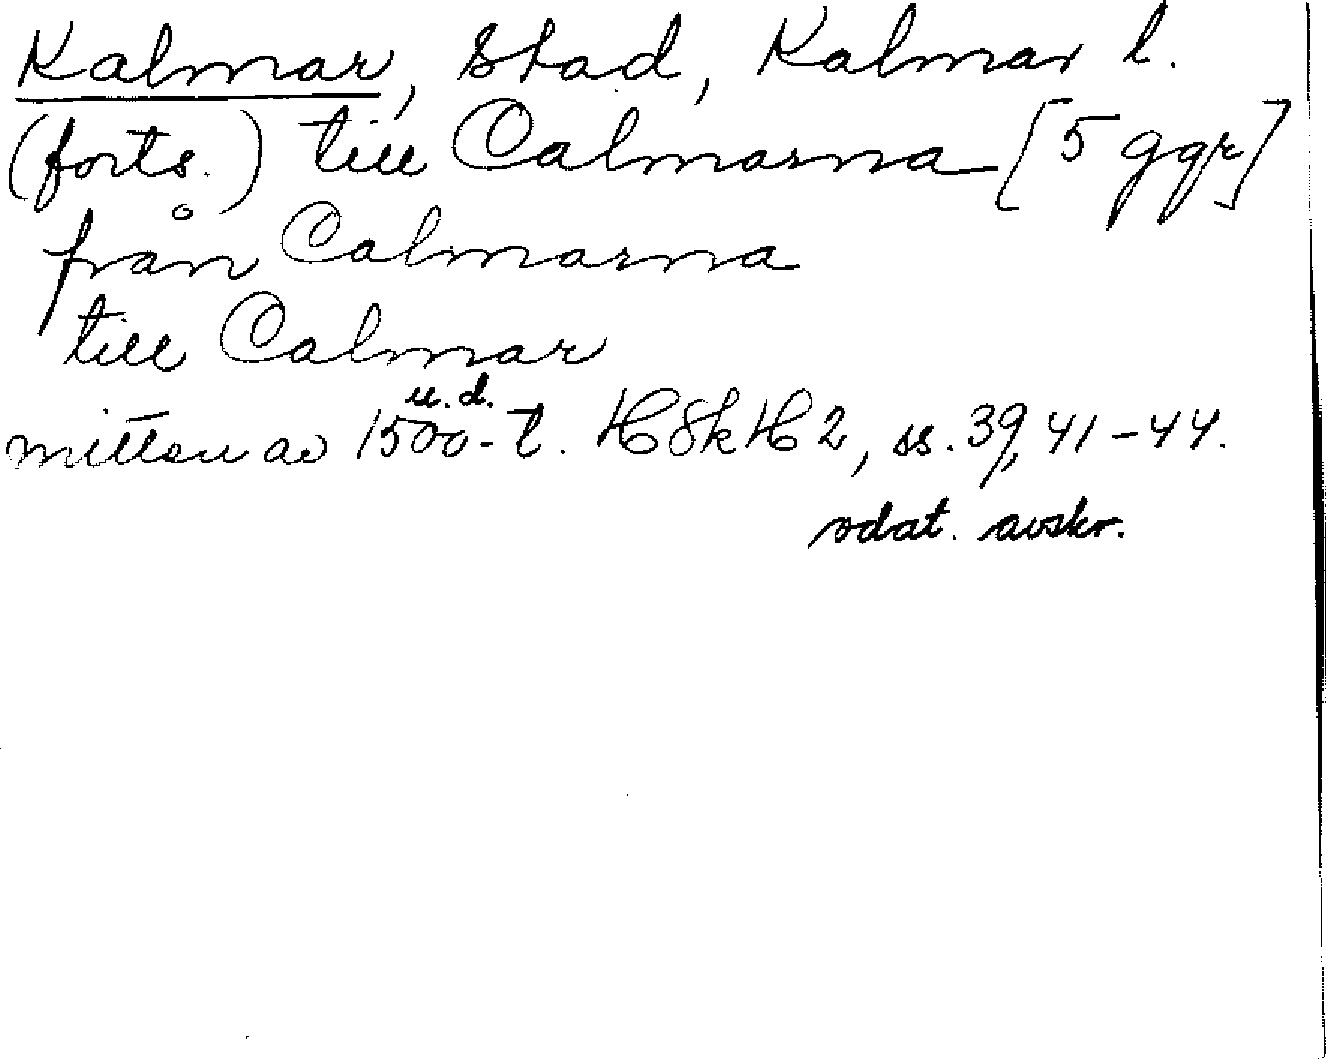 Kalmar, stad, Kalmar l.
(forts.) till Calmarna [5 ggr]
från Calmarna
till Calmar
u.d.
mitten av 1500-t. HSkH 2, ss. 39, 41-44.
odat. avskr.